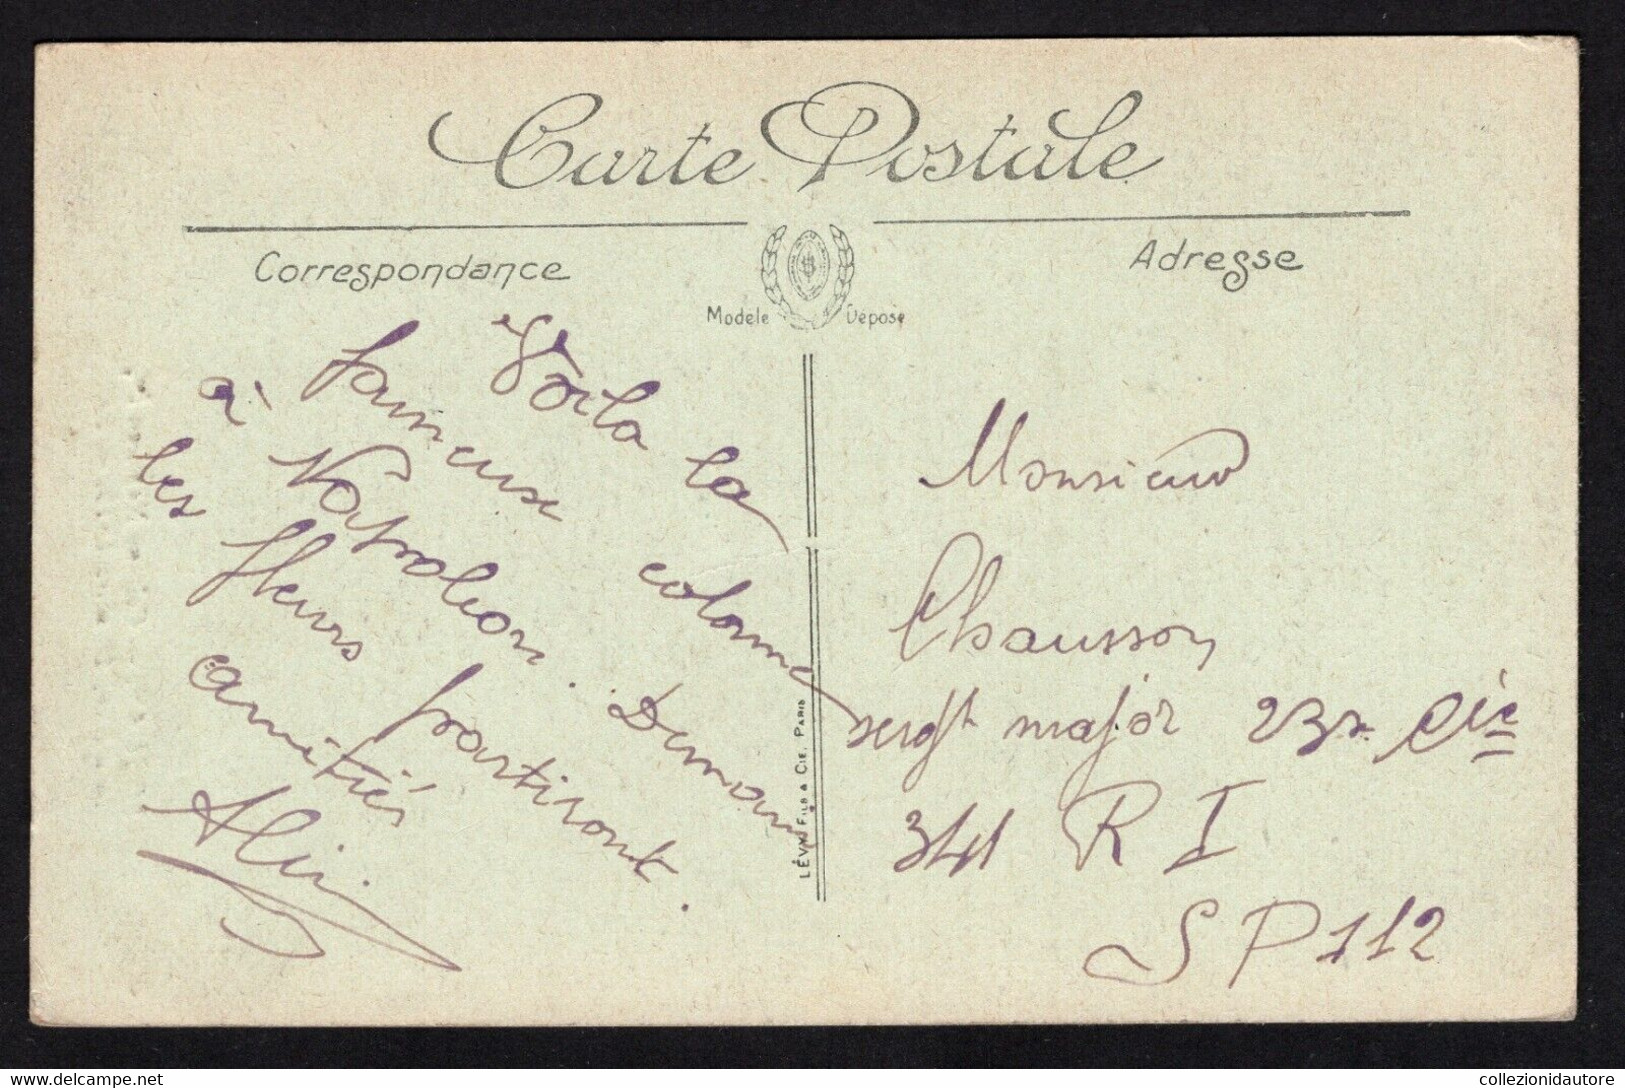 Carte Postale
Correspondance
Adresse
Modèle Déposé
Voila la
fameuse colonne
à Napoléon. Demain
les fleurs partiront.
amitiés
LÉVY FILS & CIE. PARIS
Monsieur
Chausson
sergt major 23e Cie
341 R I
S P 112
collezionidautore